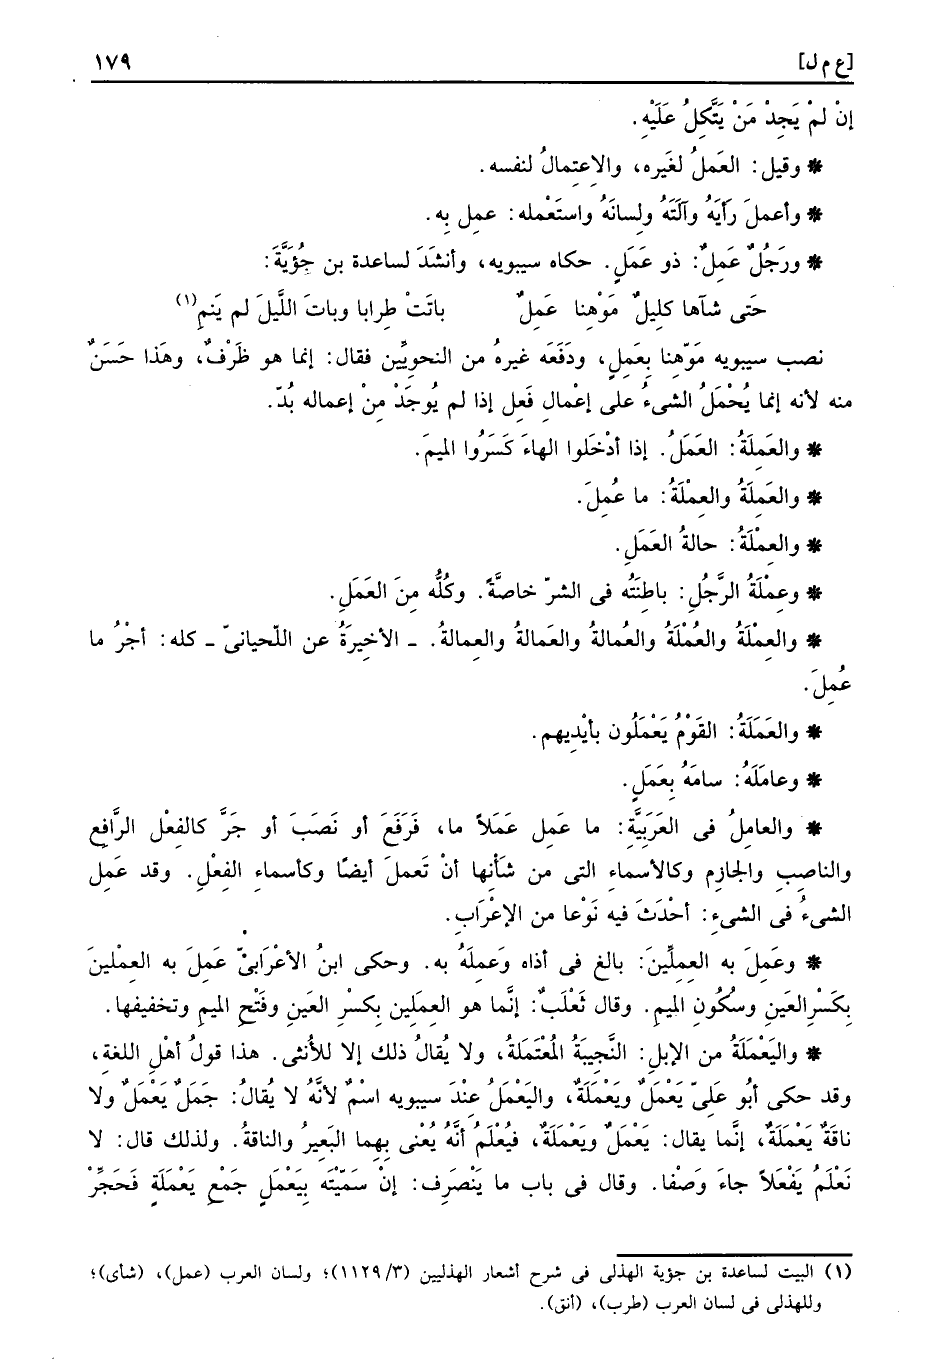 [ع م ل] ١٧٩
إنْ لمْ يَجِدْ مَنْ يَتَّكِلُ عَلَيْهِ.
* وقيل: العَملُ لغَيره، والاعتمالُ لنفسه.
* وأعملَ رَأيَهُ وآلَتَهُ ولِسانَهُ واستَعْمله: عمِل بِه.
* ورَجُلٌ عَمِلٌ: ذو عَمَلٍ. حكاه سيبويه، وأنشَدَ لساعدة بن جُؤَيَّةَ:
حَتى شآها كليلٌ مَوْهِنا عَمِلٌ باتَتْ طِرابا وباتَ اللَّيلَ لم يَنمِ(١)
نصب سيبويه مَوْهنا بِعَمِلٍ، ودَفَعَه غيرهُ من النحويِّين فقال: إنما هو ظَرْفٌ، وهَذا حَسَنٌ
منه لأنه إنما يُحْمَلُ الشىءُ على إعْمالِ فَعِل إذا لم يُوجَدْ مِنْ إعماله بُدّ.
* والعَمِلَةُ: العَمَلُ. إذا أدْخَلوا الهاءَ كَسَرُوا الميمَ.
* والعَمِلَةُ والعِمْلَةُ: ما عُمِلَ.
* والعِمْلَةُ: حالةُ العَمَلِ.
* وعِمْلَةُ الرَّجُلِ: باطِنَتُه فى الشرّ خاصَّةً. وكُلُّه مِنَ العَمَلِ.
* والعِمْلَةُ والعُمْلَةُ والعُمالةُ والعَمالةُ والعِمالةُ. ـ الأخيرَةُ عن اللّحيانىّ ـ كله: أجْرُ ما
عُمِلَ.
* والعَمَلَةُ: القَوْمُ يَعْمَلُون بأيْدِيهم.
* وعامَلَهُ: سامَهُ بِعَمَلٍ.
* والعامِلُ فى العَرَبَيَّةِ: ما عَمِل عَمَلاً ما، فَرَفَعَ أو نَصَبَ أو جَرَّ كالفِعْل الرَّافِعِ
والناصِبِ والجازِم وكالأسماءِ التى من شأنِها أنْ تَعملَ أيضًا وكأسماءِ الفِعْلِ. وقد عَمِل
الشىءُ فى الشىءِ: أحْدَثَ فيه نَوْعا من الإعْرَابِ.
* وعَمِلَ به العِمِلِّينَ: بالغ فى أذاه وَعمِلَهُ به. وحكى ابنُ الأعْرَابىّ عَمِلَ به العِمْلينَ
بِكَسْرِ العَينِ وسُكُونِ الميم. وقال ثَعْلَبٌ: إنَّما هو العِمَلِين بِكسْرِ العَينِ وفَتْحِ الميمِ وتخفيفها.
* واليَعْمَلَةُ من الإبلِ: النَّجِيبَةُ المُعْتَمَلةُ، ولا يُقالُ ذلك إلا للأنثى. هذا قولُ أهْلِ اللغة،
وقد حكى أبُو عَلىّ يَعْمَلٌ ويَعْمَلَةٌ، واليَعْمَلُ عنْدَ سيبويه اسْمٌ لأنَّهُ لا يُقالُ: جَمَلٌ يَعْمَلٌ ولا
ناقَةٌ يَعْمَلَةٌ، إنَّما يقال: يَعْمَلٌ ويَعْمَلةٌ، فيُعْلَمُ أنَّهُ يُعْنى بِهما البَعيرُ والناقةُ. ولذلك قال: لا
نَعْلَمُ يَفْعَلاً جاءَ وَصْفا. وقال فى باب ما يَنْصَرِف: إنْ سَمّيْتَه بِيَعْمَلٍ جَمْعِ يَعْمَلَةٍ فَحَجِّرْ
(١) البيت لساعدة بن جؤية الهذلى فى شرح أشعار الهذليين (٣/ ١١٢٩)؛ ولسان العرب (عمل)، (شأى)؛
وللهذلى فى لسان العرب (طرب)، (أنق).